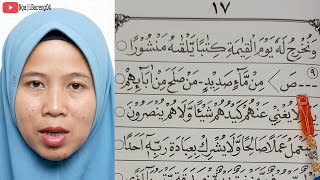 NgajiBareng04
١٧
وَنُخْرِجُ لَهُ يَوْمَ الْقِيٰمَةِ كِتٰبًا يَلْقٰىهُ مَنْشُوْرًا
٩
ص مِنْ مَّاءٍ صَدِيْدٍ - مَنْ صَلَحَ مِنْ اٰبَآئِهِمْ
يُغْنِيْ عَنْهُمْ كَيْدُهُمْ شَيْئًا وَّلَا هُمْ يُنْصَرُوْنَ
عَمَلًا صَالِحًا وَّلَا يُشْرِكْ بِعِبَادَةِ رَبِّهٖ اَحَدًا